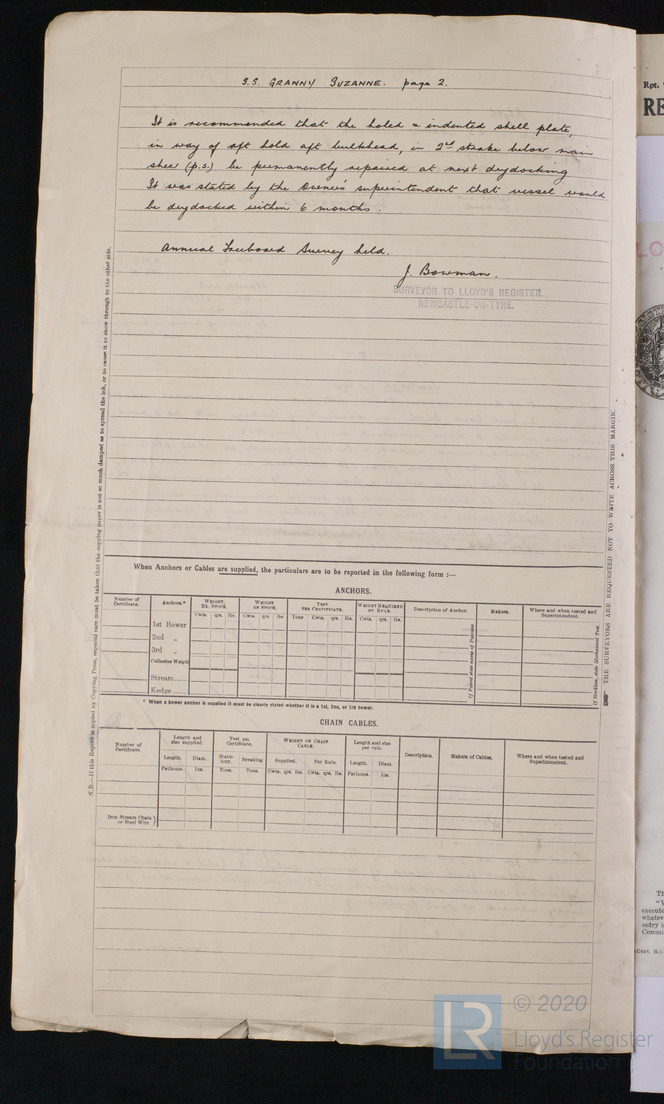 S.S. GRANNY SUZANNE. page 2.
It is recommended that the holed & indented shell plate,
in way of aft hold aft bulkhead, in 2nd strake below main
sheer (p.s.) be permanently repaired at next drydocking
It was stated by the Owner's superintendent that vessel would
be drydocked within 6 months.
Annual Freeboard Survey held.
J. Bowman.
SURVEYOR TO LLOYD'S REGISTER.
NEWCASTLE-ON-TYNE.
N.B.—If this Report is copied by Copying Press, especial care must be taken that the copying paper is not so much damped as to spread the ink, or to cause it to show through to the other side.
THE SURVEYORS ARE REQUESTED NOT TO WRITE ACROSS THIS MARGIN.
When Anchors or Cables are supplied, the particulars are to be reported in the following form :—
ANCHORS.
Number of Certificate.
Anchors.*
WEIGHT, EX. STOCK.
WEIGHT OF STOCK.
TEST PER CERTIFICATE.
WEIGHT REQUIRED BY RULE.
Description of Anchor.
Makers.
Where and when tested and Superintendent.
Cwts. qrs. lbs. Cwts. qrs. lbs. Tons Cwts. qrs. lbs. Cwts. qrs. lbs.
1st Bower
2nd „
3rd „
Collective Weight
Stream......
Kedge......
If Patent state name of Patentee
If Stockless, state Mechanical Test.
* When a bower anchor is supplied it must be clearly stated whether it is a 1st, 2nd, or 3rd bower.
CHAIN CABLES.
Number of Certificate.
Length and size supplied.
Test per Certificate.
WEIGHT OF CHAIN CABLE.
Length and size per rule.
Description.
Makers of Cables.
Where and when tested and Superintendent.
Length. Diam. Statutory. Breaking Supplied. Per Rule. Length. Diam.
Fathoms. Ins. Tons. Tons. Cwts. qrs. lbs. Cwts. qrs. lbs. Fathoms. Ins.
Iron Stream Chain or Steel Wire
Rpt.
RE
LO
Th
execute
whatev
entry i
Commi
(Cert. B.)
LR
© 2020
Lloyd's Register
Foundation